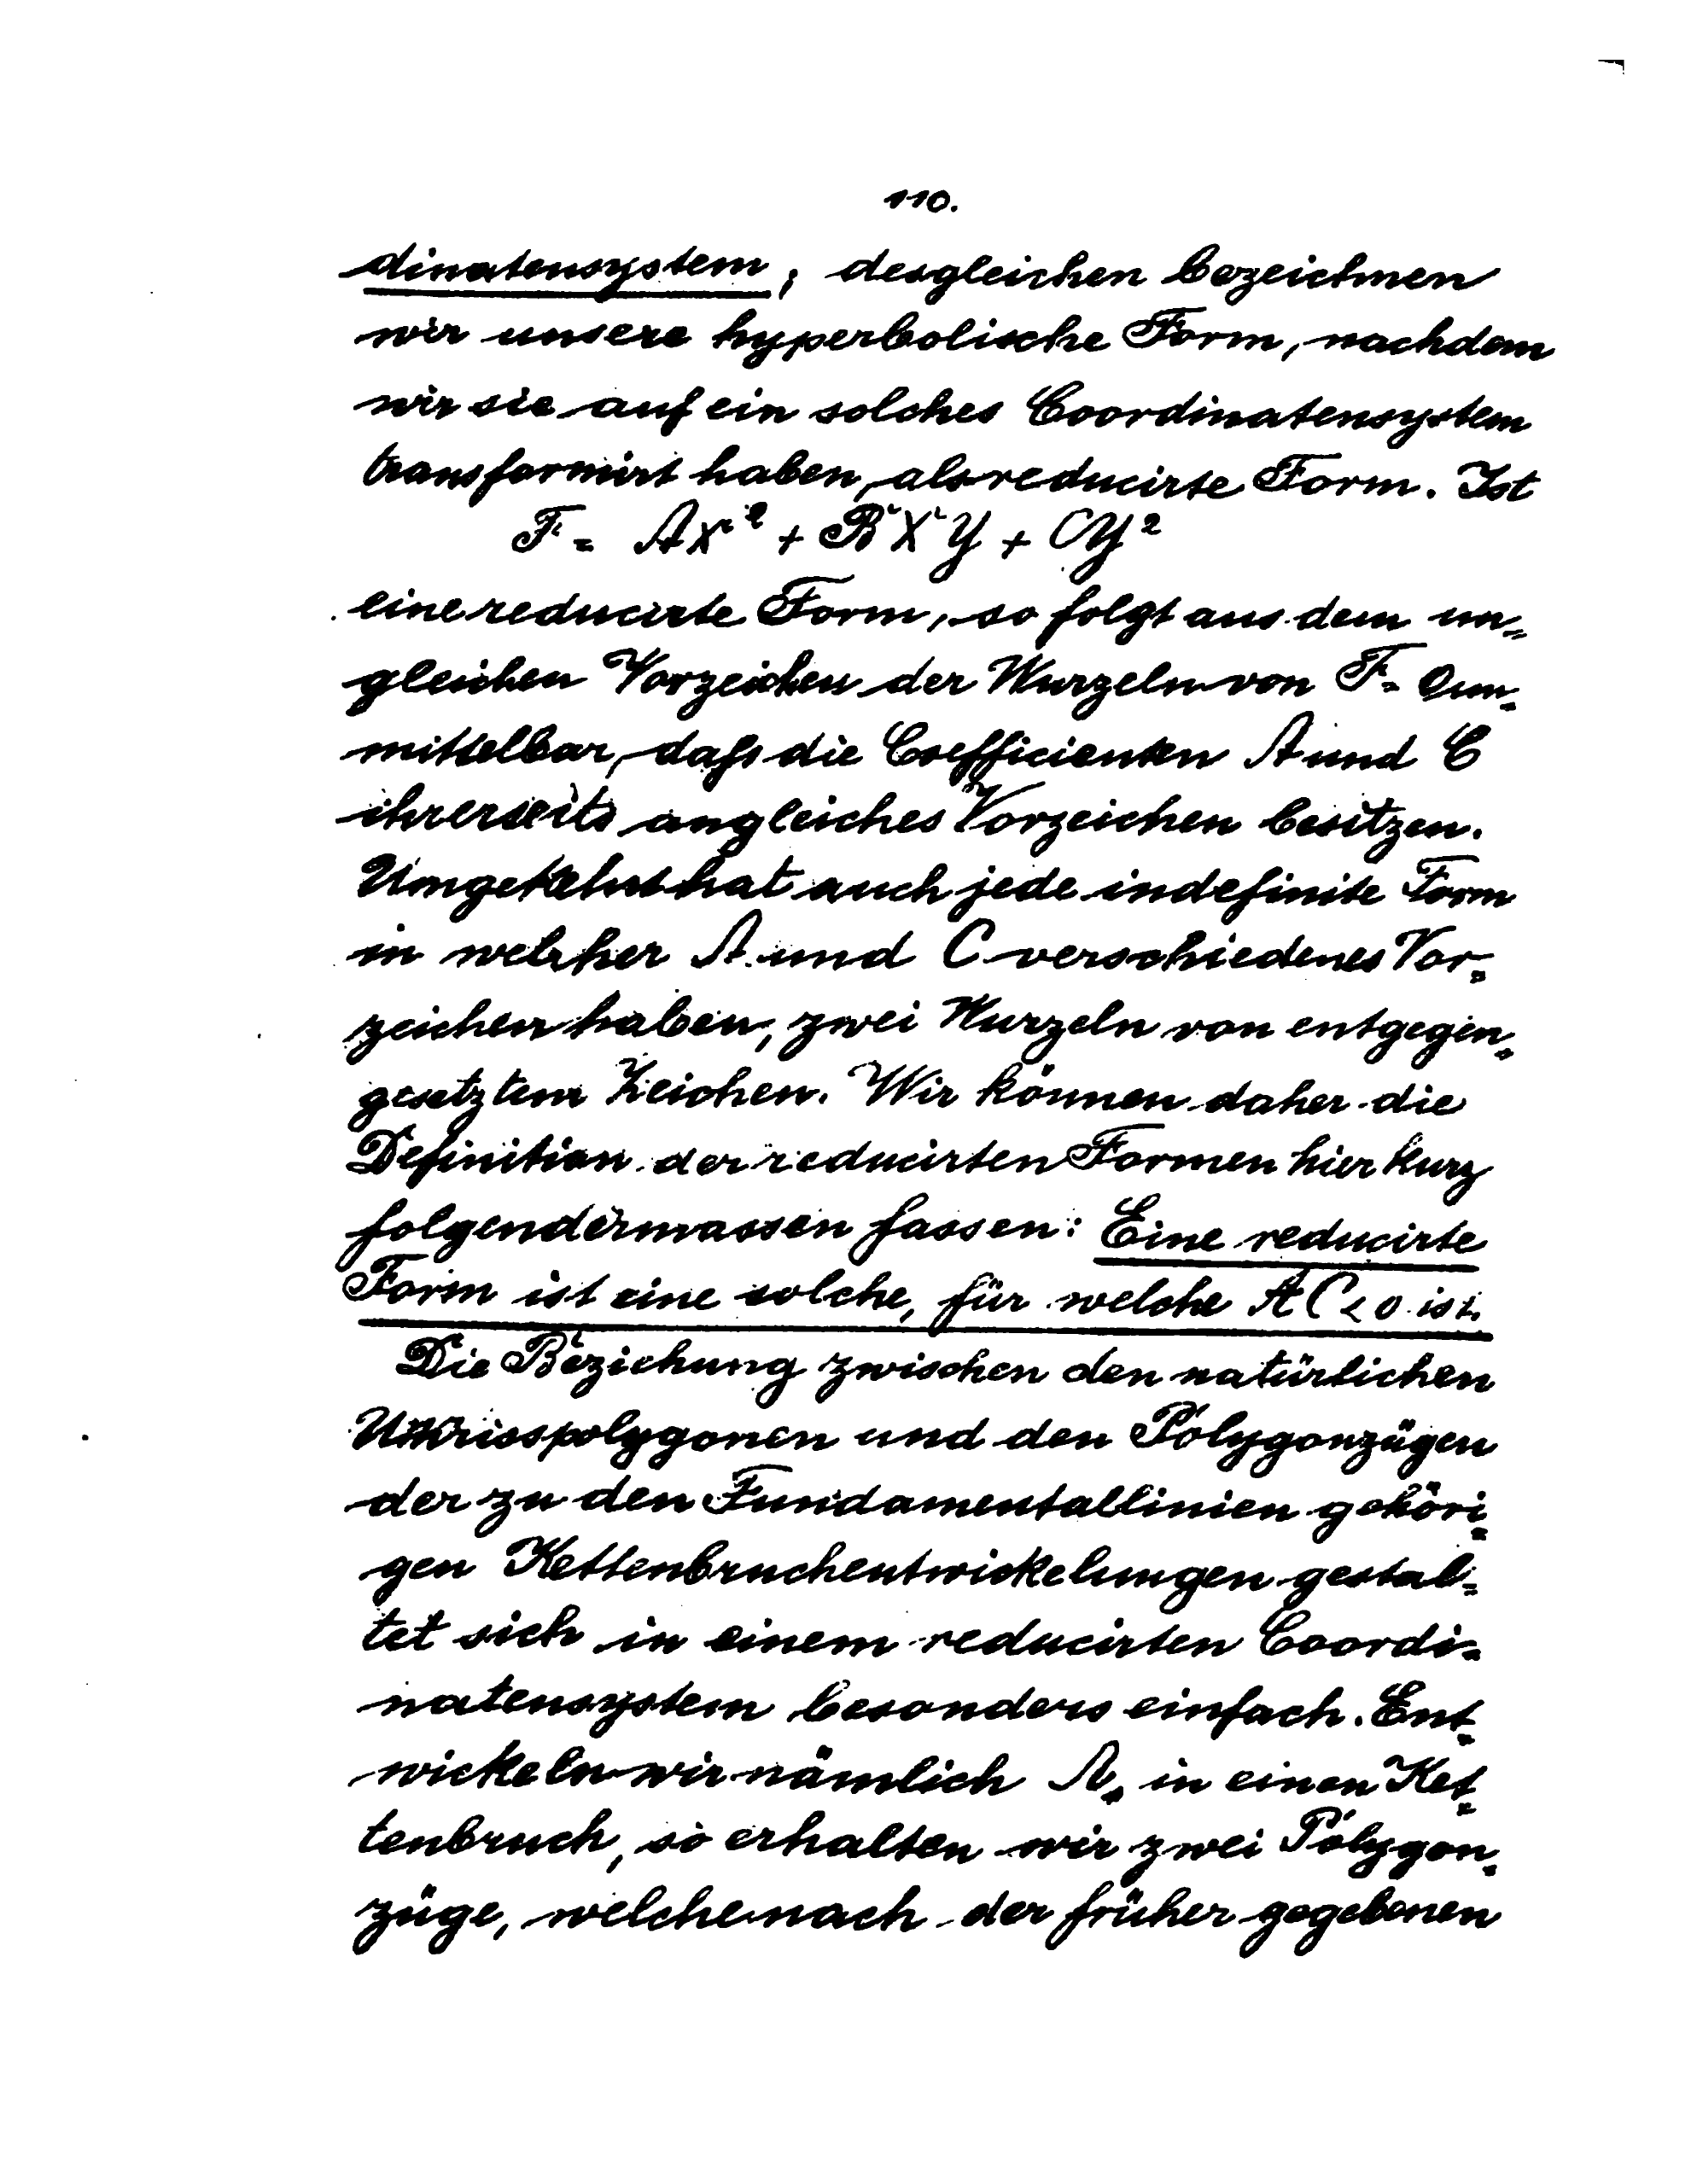 110.
dinatensystem; desgleichen bezeichnen
wir unsere hyperbolische Form, nachdem
wir sie auf ein solches Coordinatensystem
transformirt haben, als reducirte Form. Ist
F = AX² + BXY + CY²
eine reducirte Form, so folgt aus dem un=
gleichen Vorzeichen der Wurzeln von F = 0 un=
mittelbar, daß die Coefficienten A und C
ihrerseits ungleiches Vorzeichen besitzen.
Umgekehrt hat auch jede indefinite Form
in welcher A und C verschiedenes Vor=
zeichen haben, zwei Wurzeln von entgegen=
gesetztem Zeichen. Wir können daher die
Definition der reducirten Formen hier kurz
folgendermassen fassen: Eine reducirte
Form ist eine solche, für welche AC < 0 ist.
Die Beziehung zwischen den natürlichen
Umrisspolygonen und den Polygonzügen
der zu den Fundamentallinien gehöri=
gen Kettenbruchentwickelungen gestal=
tet sich in einem reducirten Coordi=
natensystem besonders einfach. Ent=
wickeln wir nämlich in einen Ket=
tenbruch, so erhalten wir zwei Polygon=
züge, welche nach der früher gegebenen